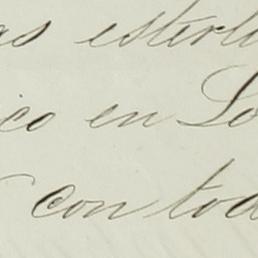 as esterli
ico en Lo
con tod